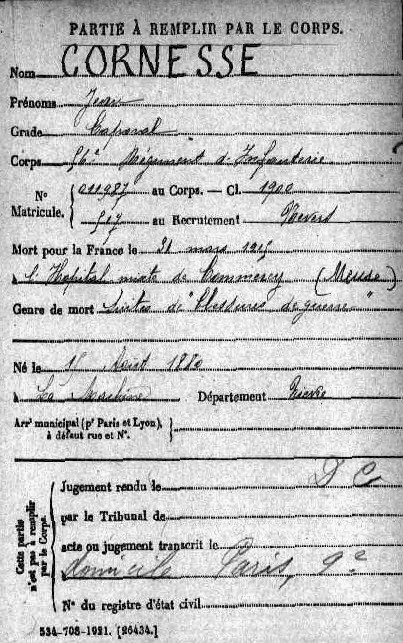 PARTIE À REMPLIR PAR LE CORPS.
Nom CORNESSE
Prénoms Jean
Grade Caporal
Corps 56e Régiment d'Infanterie
N° Matricule. { 011987 au Corps. — Cl. 1900
517 au Recrutement Nevers
Mort pour la France le 31 mars 1915
à l'Hopital mixte de Commercy (Meuse)
Genre de mort Suites de "Blessures de guerre"
Né le 15 Août 1880
à La Machine Département Nièvre
Arrt municipal (pr Paris et Lyon),
à défaut rue et N°.
Cette partie n'est pas à remplir par le Corps.
Jugement rendu le D C
par le Tribunal de
acte ou jugement transcrit le
domicile Paris, 9e
N° du registre d'état civil
534-708-1921. [26434.]